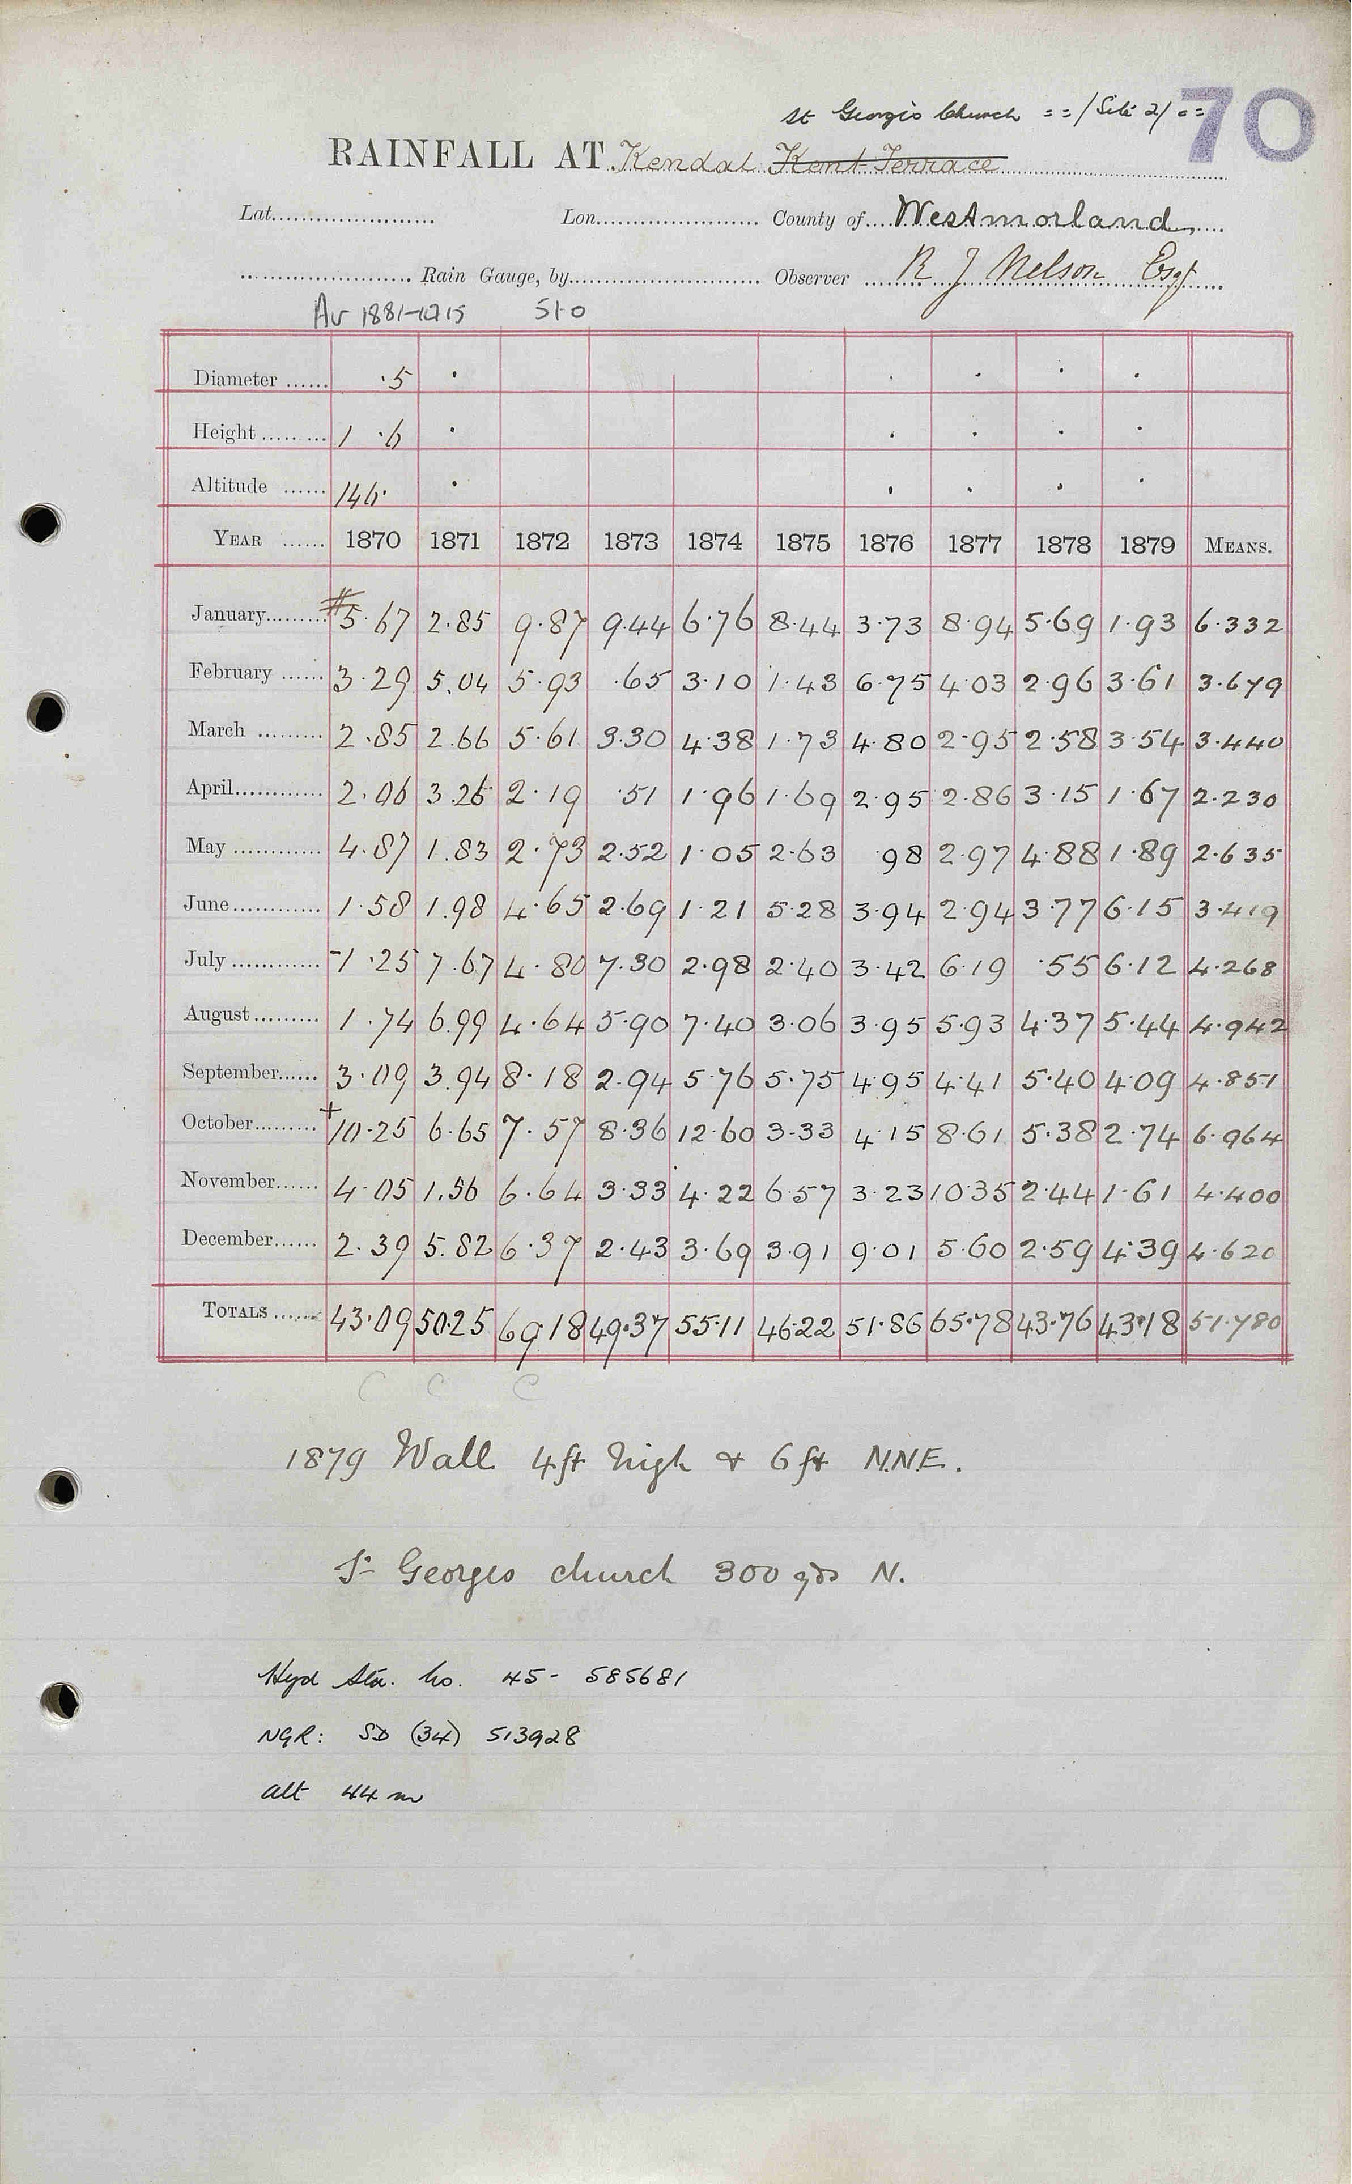 70
St George's Church == / Site 2 / ==
RAINFALL AT Kendal Kent Terrace
Lat. Lon. County of Westmorland
Rain Gauge, by Observer R J Nelson Esqr
Av 1881-1915 51.0
Diameter ...... .5
Height ......... 1 .6
Altitude ...... 146
YEAR ...... 1870 1871 1872 1873 1874 1875 1876 1877 1878 1879 MEANS.
January......... #5.67 2.85 9.87 9.44 6.76 8.44 3.73 8.94 5.69 1.93 6.332
February ...... 3.29 5.04 5.93 .65 3.10 1.43 6.75 4.03 2.96 3.61 3.679
March ......... 2.85 2.66 5.61 3.30 4.38 1.73 4.80 2.95 2.58 3.54 3.440
April............ 2.06 3.26 2.19 .51 1.96 1.69 2.95 2.86 3.15 1.67 2.230
May ............ 4.87 1.83 2.73 2.52 1.05 2.63 98 2.97 4.88 1.89 2.635
June............ 1.58 1.98 4.65 2.69 1.21 5.28 3.94 2.94 3.77 6.15 3.419
July ............ -1.25 7.67 4.80 7.30 2.98 2.40 3.42 6.19 .55 6.12 4.268
August ......... 1.74 6.99 4.64 5.90 7.40 3.06 3.95 5.93 4.37 5.44 4.942
September...... 3.09 3.94 8.18 2.94 5.76 5.75 4.95 4.41 5.40 4.09 4.851
October......... +10.25 6.65 7.57 8.36 12.60 3.33 4.15 8.61 5.38 2.74 6.964
November...... 4.05 1.56 6.64 3.33 4.22 6.57 3.23 10.35 2.44 1.61 4.400
December...... 2.39 5.82 6.37 2.43 3.69 3.91 9.01 5.60 2.59 4.39 4.620
TOTALS ...... 43.09 50.25 69.18 49.37 55.11 46.22 51.86 65.78 43.76 43.18 51.780
C C C
1879 Wall 4ft high & 6 ft N.N.E.
St Georges church 300 yds N.
Hyd Sta. No. 45- 585681
NGR: SD (34) 513928
alt 44 m